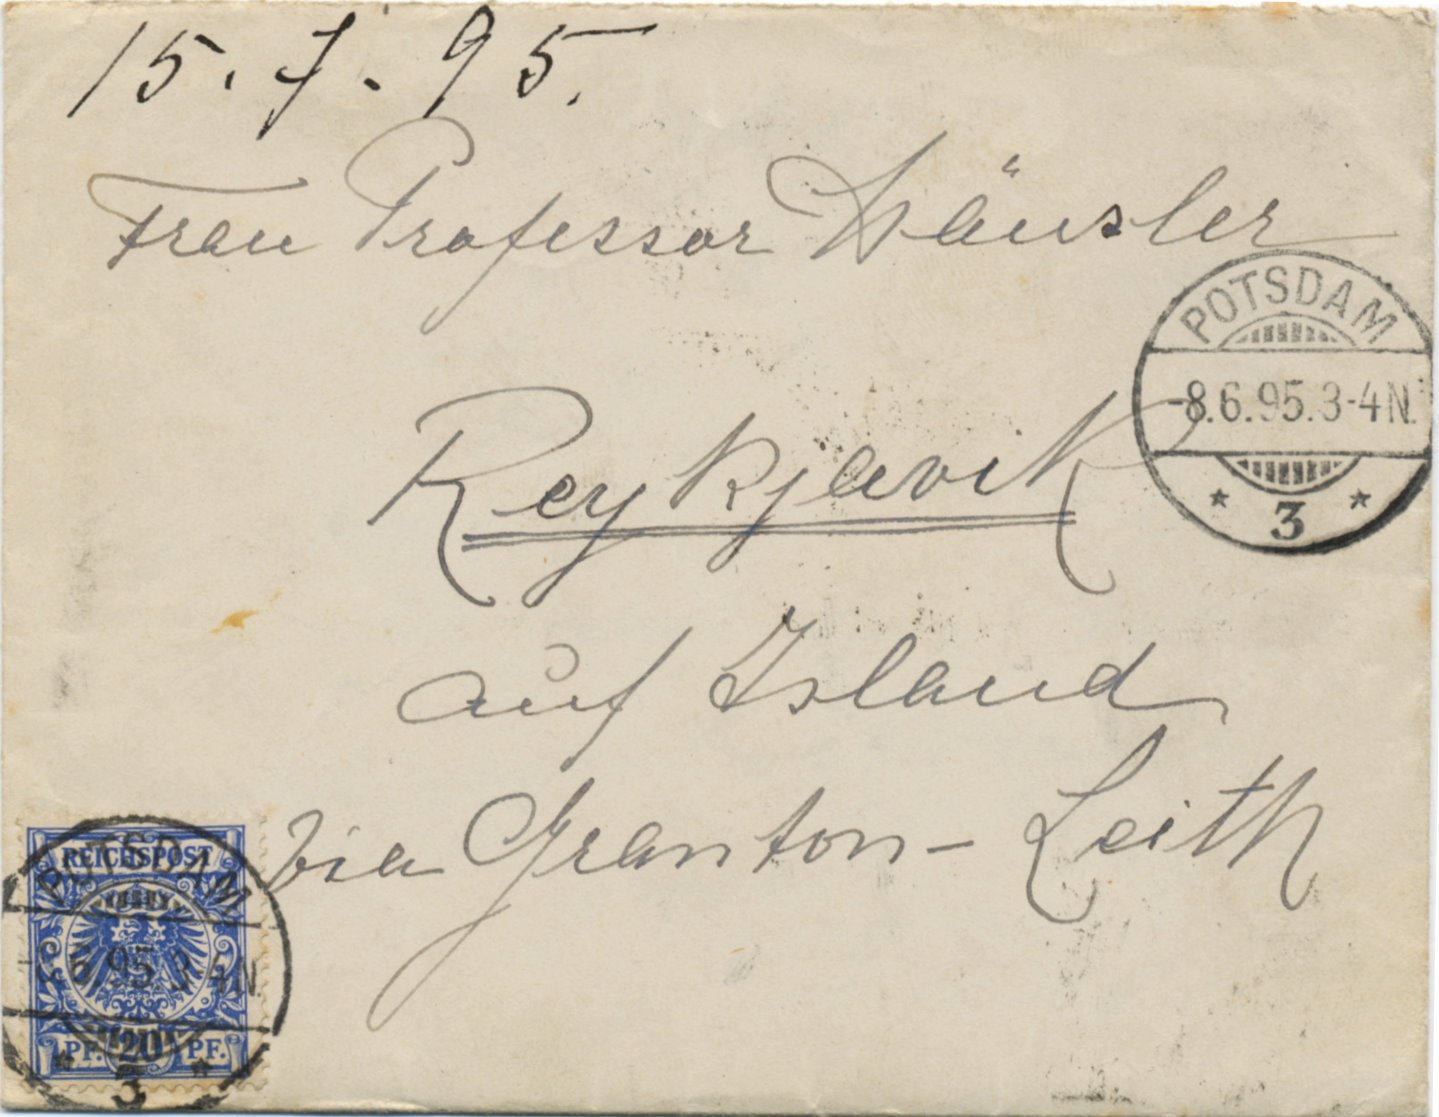 15.7.95.
Frau Professor Häusler
POTSDAM
-8.6.95.3-4N.
* 3 *
Reykjavik
auf Island
via Granton-Leith
REICHSPOST
POTSDAM
8.6.95.3-4N.
PF. 20 PF.
* 3 *